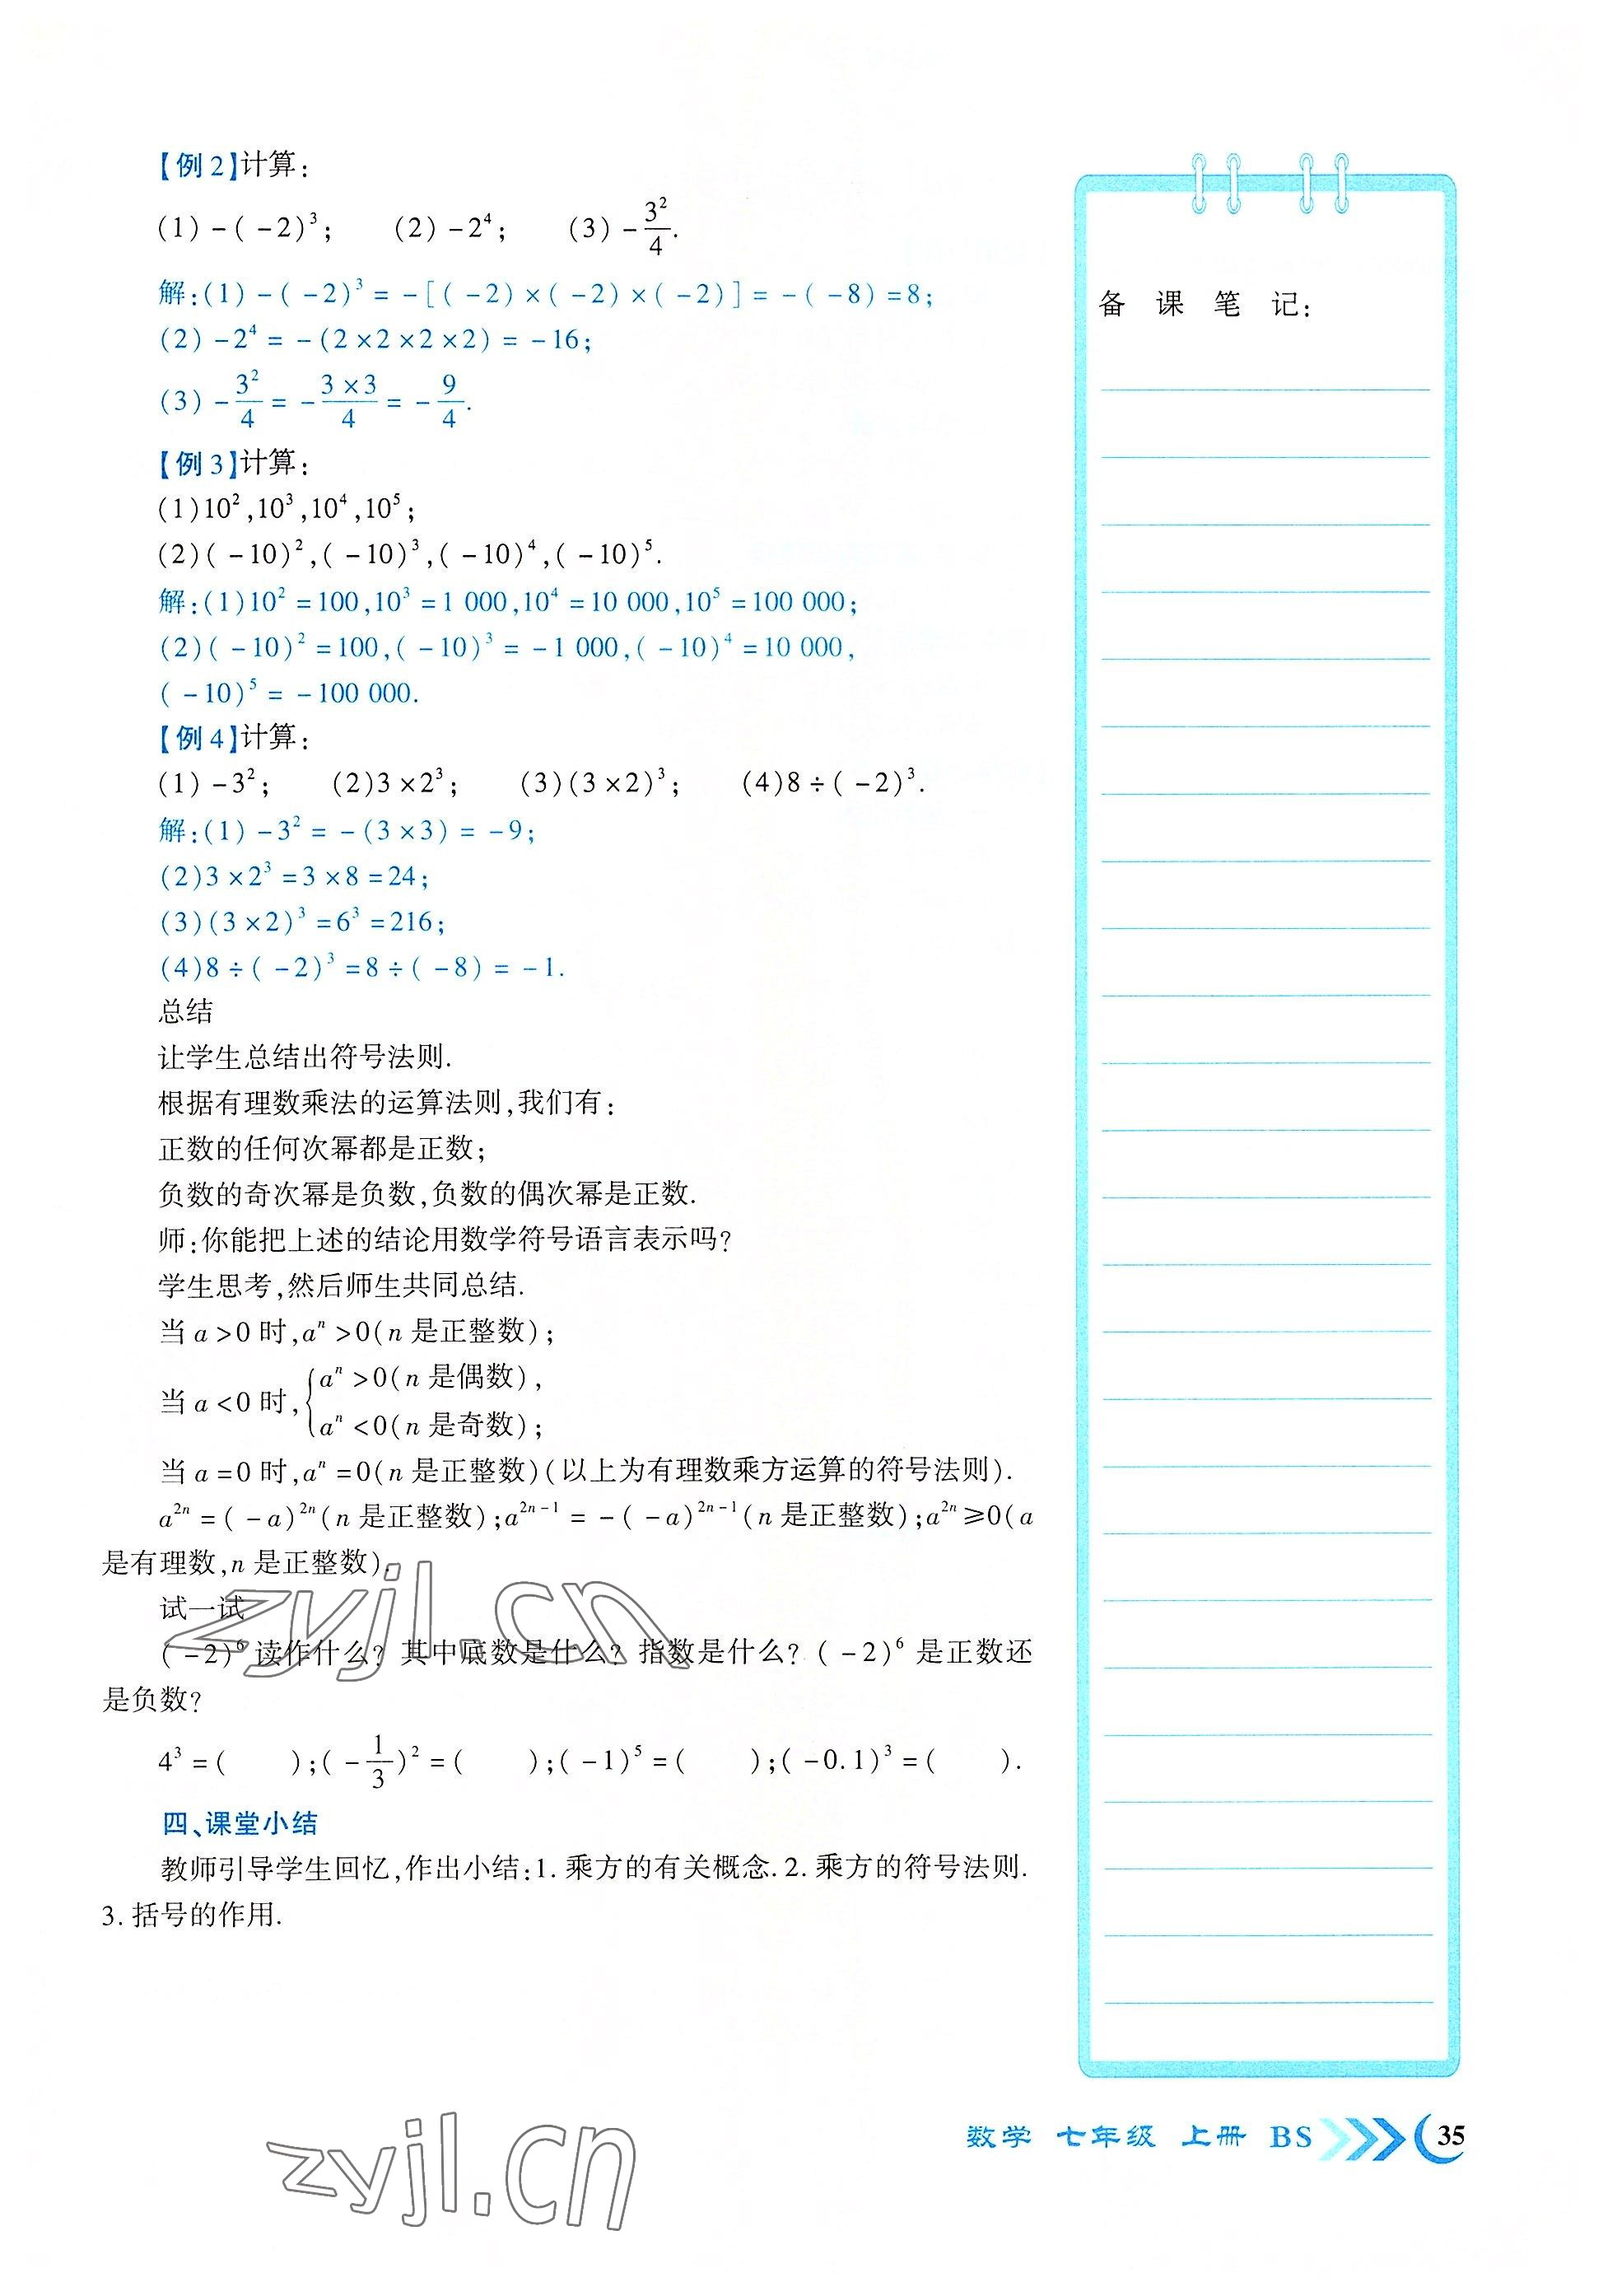 【例2】计算:
(1)-(-2)³; (2)-2⁴; (3)-3²/4.
解:(1)-(-2)³=-[(-2)×(-2)×(-2)]=-(-8)=8;
(2)-2⁴=-(2×2×2×2)=-16;
(3)-3²/4=-(3×3)/4=-9/4.
【例3】计算:
(1)10²,10³,10⁴,10⁵;
(2)(-10)²,(-10)³,(-10)⁴,(-10)⁵.
解:(1)10²=100,10³=1 000,10⁴=10 000,10⁵=100 000;
(2)(-10)²=100,(-10)³=-1 000,(-10)⁴=10 000,
(-10)⁵=-100 000.
【例4】计算:
(1)-3²; (2)3×2³; (3)(3×2)³; (4)8÷(-2)³.
解:(1)-3²=-(3×3)=-9;
(2)3×2³=3×8=24;
(3)(3×2)³=6³=216;
(4)8÷(-2)³=8÷(-8)=-1.
总结
让学生总结出符号法则.
根据有理数乘法的运算法则,我们有:
正数的任何次幂都是正数;
负数的奇次幂是负数,负数的偶次幂是正数.
师:你能把上述的结论用数学符号语言表示吗?
学生思考,然后师生共同总结.
当a>0时,aⁿ>0(n是正整数);
当a<0时,{aⁿ>0(n是偶数),
aⁿ<0(n是奇数);
当a=0时,aⁿ=0(n是正整数)(以上为有理数乘方运算的符号法则).
a²ⁿ=(-a)²ⁿ(n是正整数);a²ⁿ⁻¹=-(-a)²ⁿ⁻¹(n是正整数);a²ⁿ≥0(a
是有理数,n是正整数).
试一试
(-2)⁶读作什么?其中底数是什么?指数是什么?(-2)⁶是正数还
是负数?
4³=( );(-1/3)²=( );(-1)⁵=( );(-0.1)³=( ).
四、课堂小结
教师引导学生回忆,作出小结:1.乘方的有关概念.2.乘方的符号法则.
3.括号的作用.
备 课 笔 记:
zyjl.cn
zyjl.cn
数学 七年级 上册 BS 35